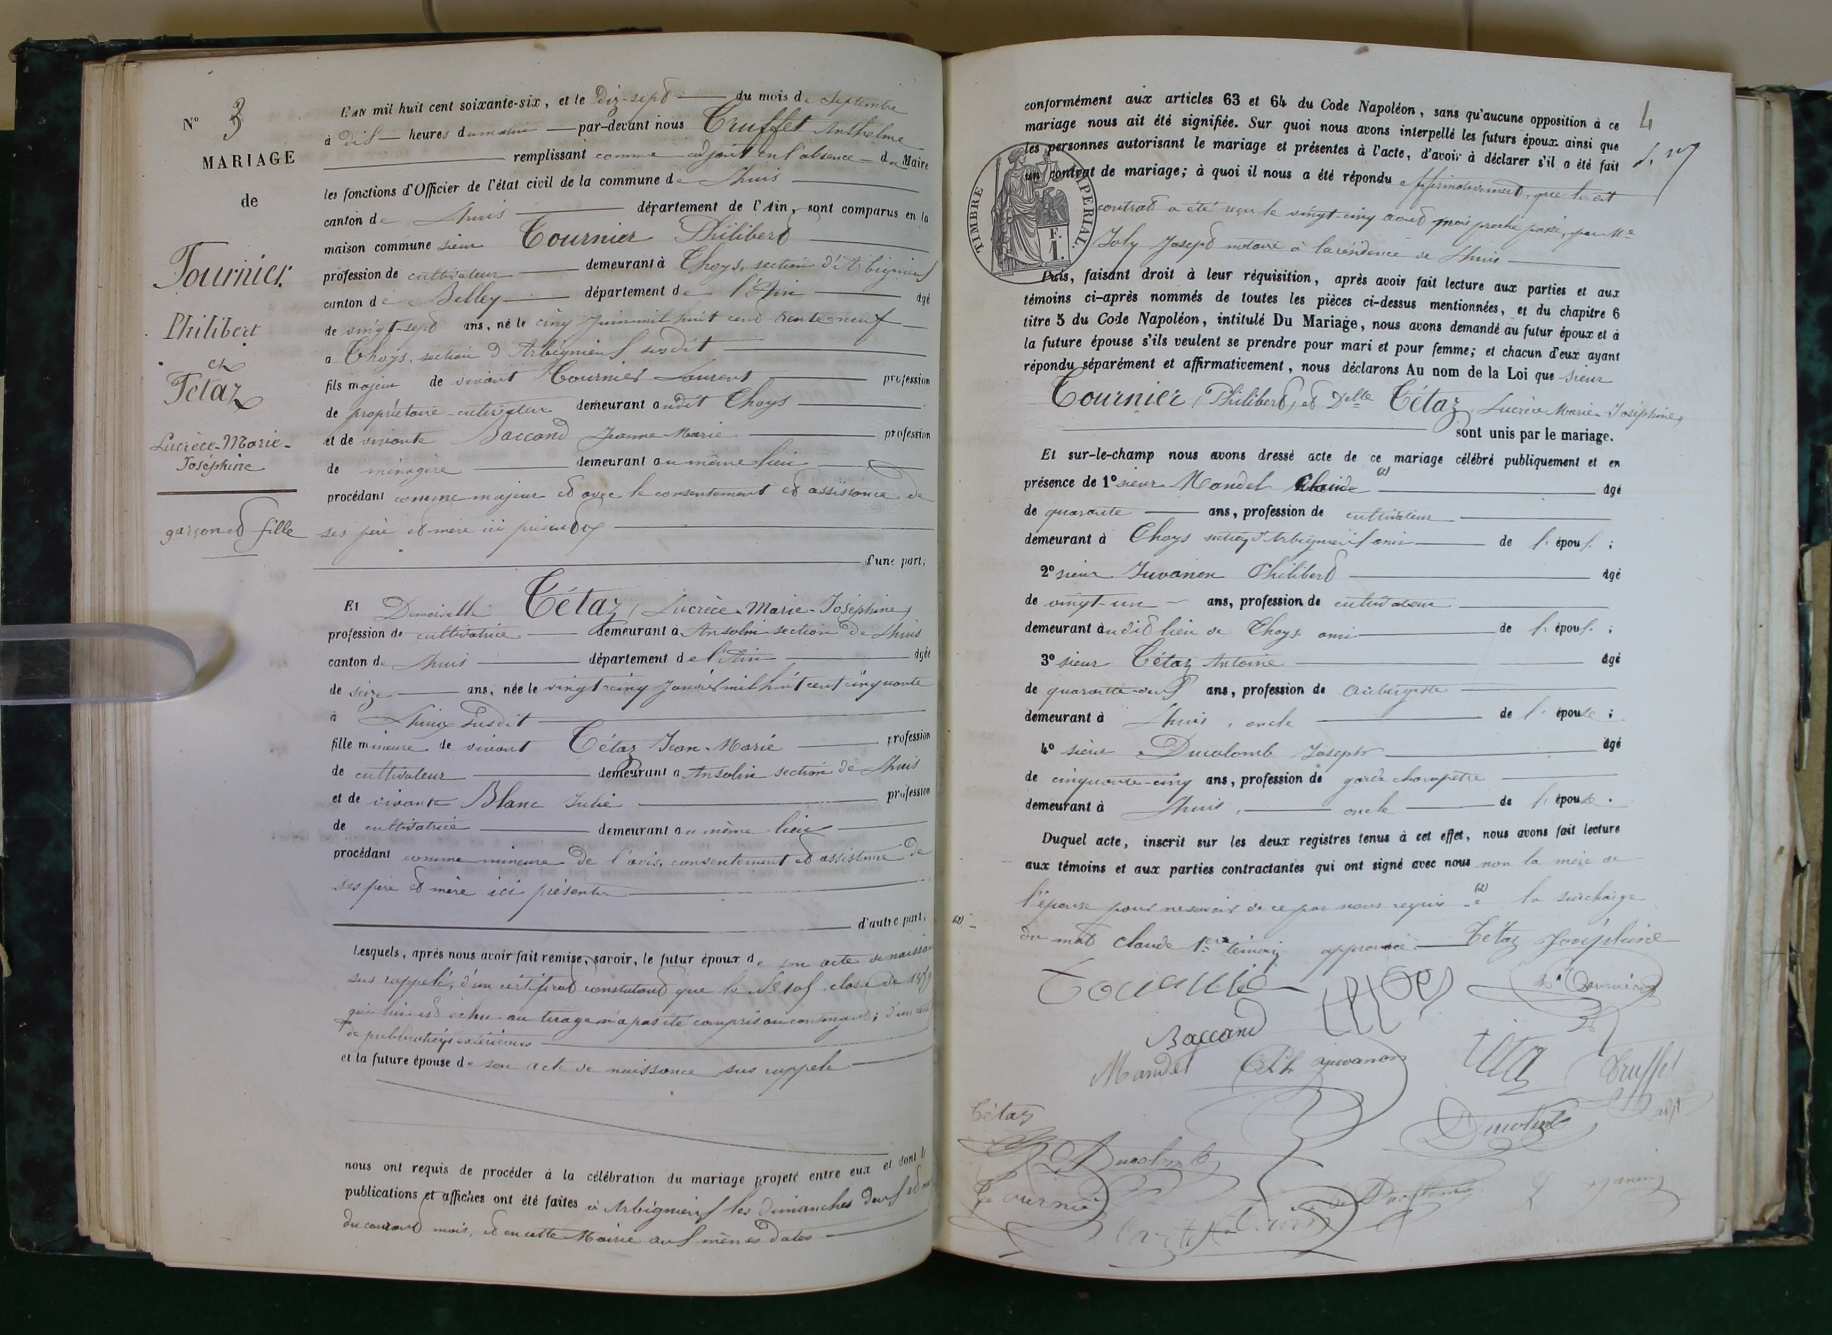 N° 3
MARIAGE
de
Tournier
Philibert
et
Tétaz
Lucrèce-Marie-
Joséphine
garçon et fille
L'an mil huit cent soixante-six, et le Dix-sept du mois de Septembre
à dix heures du matin par-devant nous Truffet Anthelme
remplissant comme adjoint en l'absence du Maire
les fonctions d'Officier de l'état civil de la commune de Lhuis
canton de Lhuis département de l'Ain, sont comparus en la
maison commune sieur Tournier Philibert
profession de cultivateur demeurant à Thoys, section d'Arbignieu
canton de Belley département de l'Ain âgé
de vingt-sept ans, né le cinq Juin mil huit cent trente-neuf
à Thoys, section d'Arbignieu susdit
fils majeur de vivant Tournier Laurent profession
de propriétaire-cultivateur demeurant audit Thoys
et de vivante Baccand Jeanne Marie profession
de ménagère demeurant au même lieu
procédant comme majeur et avec le consentement et assistance de
ses père et mère ici présents
d'une part;
Et Demoiselle Tétaz, Lucrèce-Marie-Joséphine,
profession de cultivatrice demeurant à Ansolin section de Lhuis
canton de Lhuis département de l'Ain âgée
de seize ans, née le vingt-cinq Janvier mil huit cent cinquante
à Lhuis susdit
fille mineure de vivant Tétaz Jean-Marie profession
de cultivateur demeurant à Ansolin section de Lhuis
et de vivante Blanc Julie profession
de cultivatrice demeurant au même lieu
procédant comme mineure de l'avis, consentement et assistance de
ses père et mère ici présents
d'autre part.
Lesquels, après nous avoir fait remise, savoir, le futur époux de son acte de naissance
sus rappelé, d'un certificat constatant que le N° 101 classe de 1859
qui lui est échu au tirage n'a pas été compris au contingent; d'un certificat
de publications extérieures
et la future épouse de son acte de naissance sus rappelé
nous ont requis de procéder à la célébration du mariage projeté entre eux et dont les
publications et affiches ont été faites à Arbignieu les dimanches deux et neuf
du courant mois, et en cette Mairie aux mêmes dates
4
conformément aux articles 63 et 64 du Code Napoléon, sans qu'aucune opposition à ce
mariage nous ait été signifiée. Sur quoi nous avons interpellé les futurs époux ainsi que
les personnes autorisant le mariage et présentes à l'acte, d'avoir à déclarer s'il a été fait
un contrat de mariage; à quoi il nous a été répondu affirmativement, que le dit
contrat a été reçu le vingt-cinq août mois proche passé, par Me
Joly Joseph notaire à la résidence de Lhuis
TIMBRE IMPERIAL.
1 F.
Puis, faisant droit à leur réquisition, après avoir fait lecture aux parties et aux
témoins ci-après nommés de toutes les pièces ci-dessus mentionnées, et du chapitre 6
titre 5 du Code Napoléon, intitulé Du Mariage, nous avons demandé au futur époux et à
la future épouse s'ils veulent se prendre pour mari et pour femme; et chacun d'eux ayant
répondu séparément et affirmativement, nous déclarons Au nom de la Loi que sieur
Tournier, Philibert, et Delle Tétaz, Lucrèce-Marie-Joséphine,
sont unis par le mariage.
Et sur-le-champ nous avons dressé acte de ce mariage célébré publiquement et en
présence de 1° sieur Mandel Claude (2) âgé
de quarante ans, profession de cultivateur
demeurant à Thoys section d'Arbignieu ami de l'époux;
2° sieur Juvanon Philibert âgé
de vingt-un ans, profession de cultivateur
demeurant audit lieu de Thoys ami de l'époux;
3° sieur Tétaz Antoine âgé
de quarante-neuf ans, profession de aubergiste
demeurant à Lhuis, oncle de l'épouse;
4° sieur Ducolomb Joseph âgé
de cinquante-cinq ans, profession de garde champêtre
demeurant à Lhuis, oncle de l'épouse.
Duquel acte, inscrit sur les deux registres tenus à cet effet, nous avons fait lecture
aux témoins et aux parties contractantes qui ont signé avec nous non la mère de
l'épouse pour ne savoir de ce par nous requis (2) la surcharge
(2)
du mot Claude 1er témoin approuvée Tétaz Joséphine
Tournié
Baccand
Mandel Ph Juvanon Tétaz Truffet
Tétaz Ducolomb
Ducolomb
Tournié